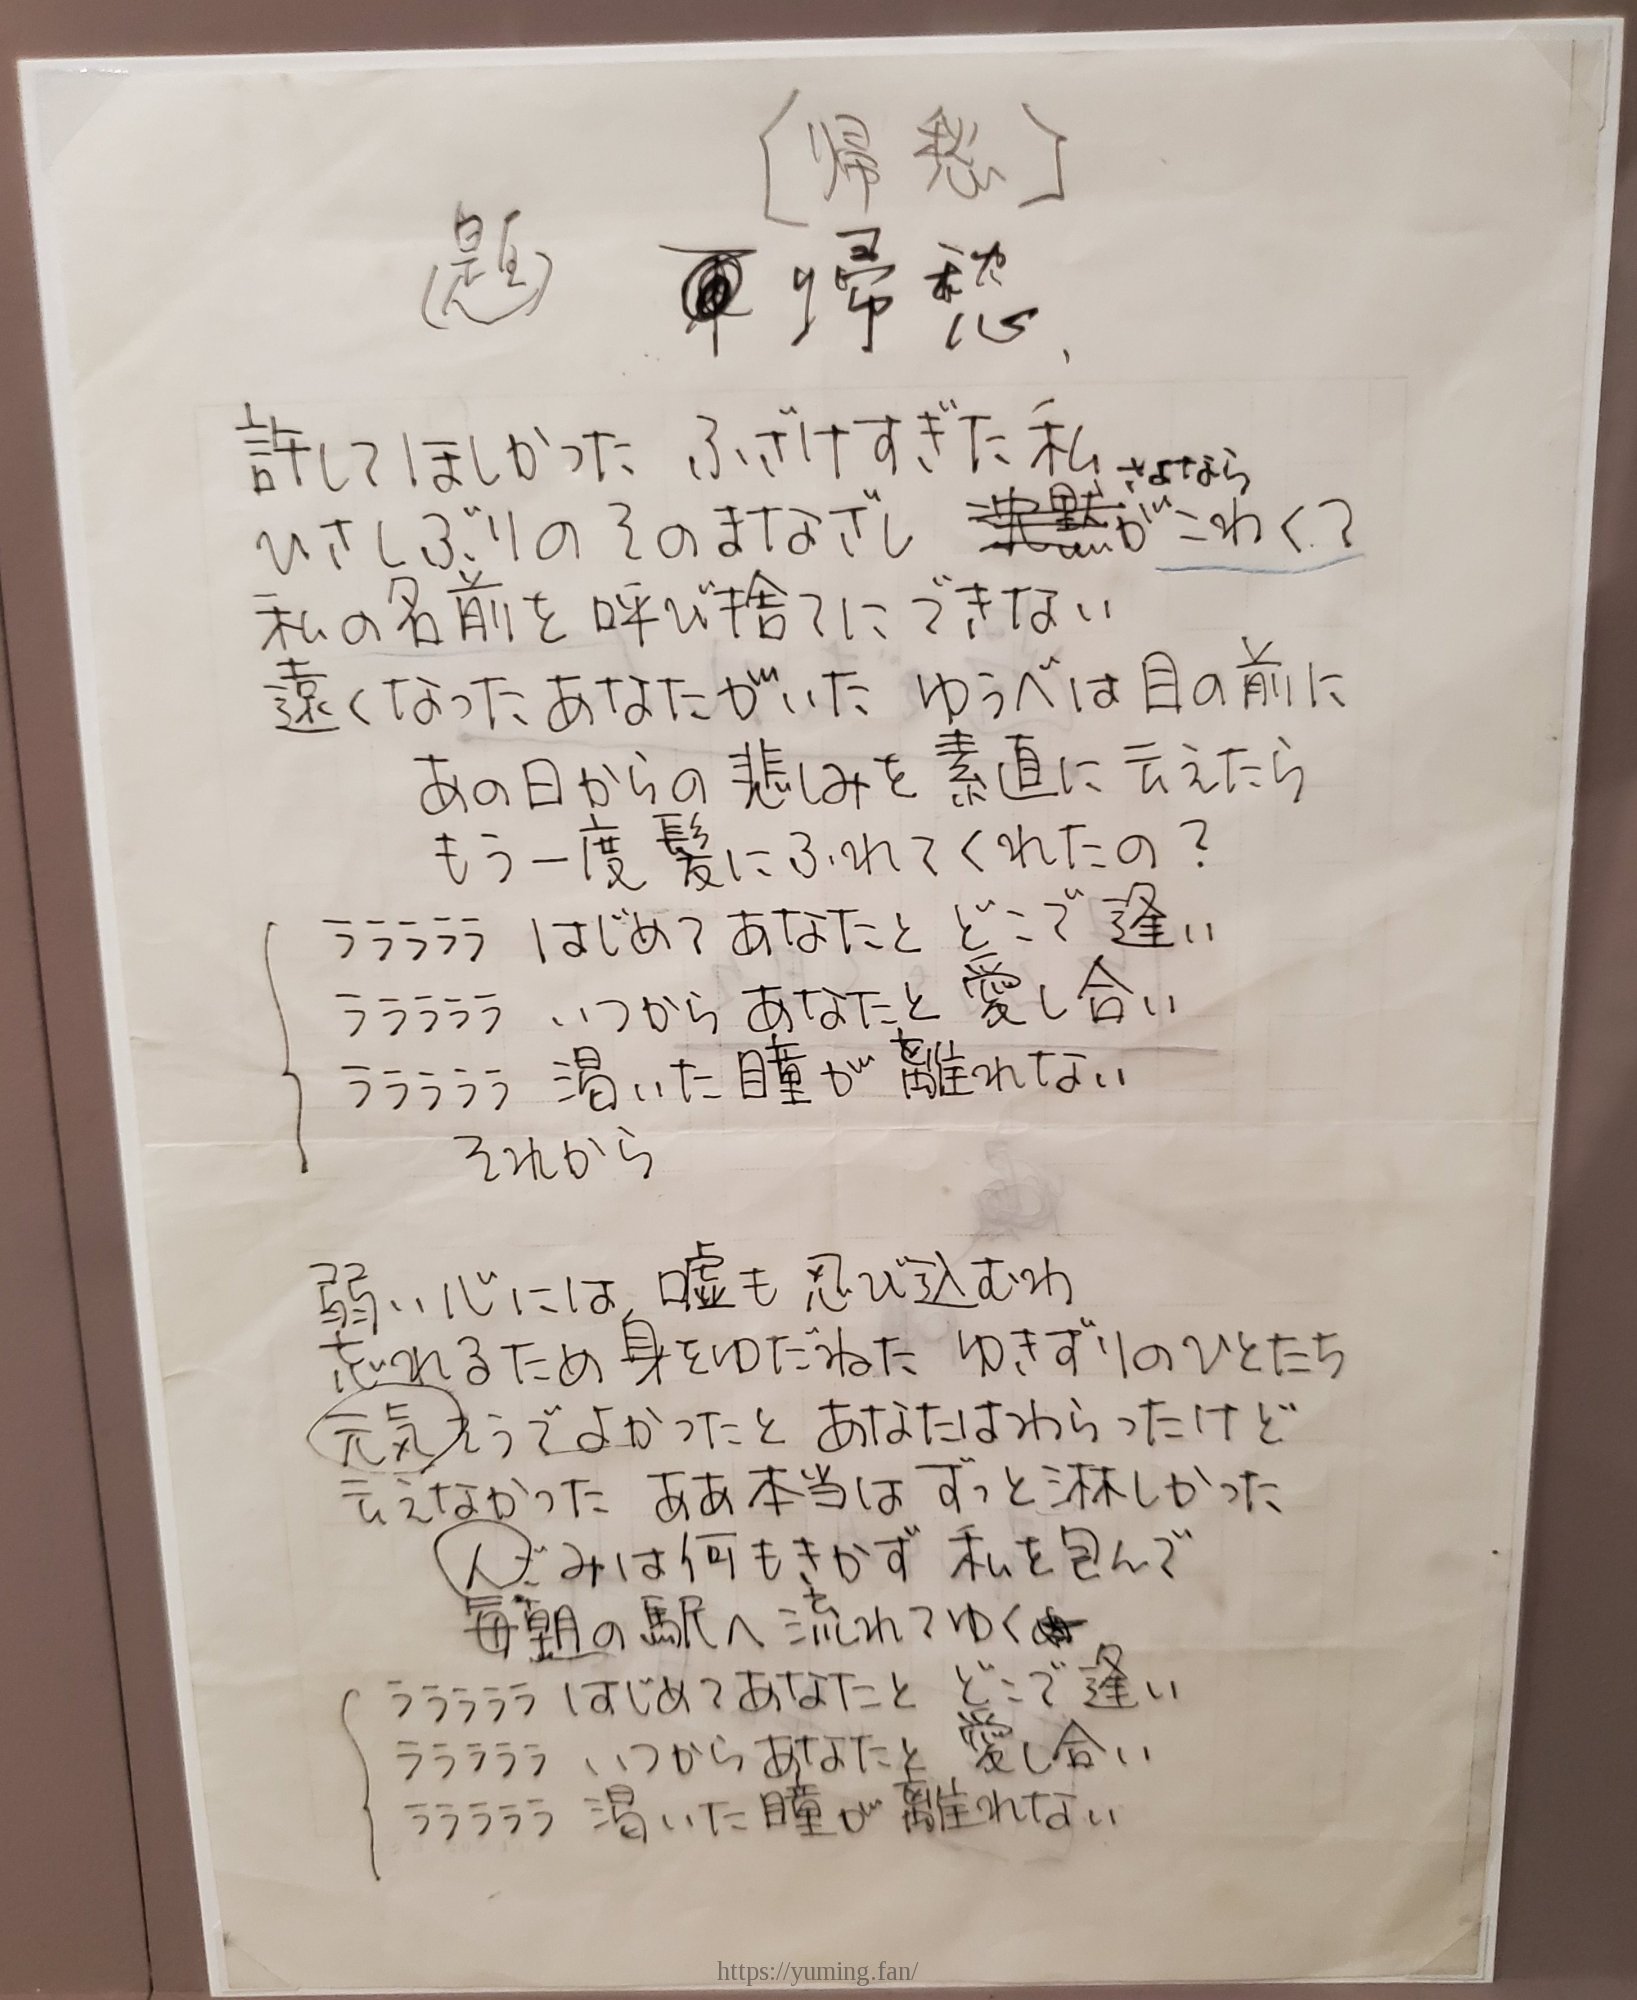 〔帰愁〕
(題) 帰愁
許してほしかった ふざけすぎた私
さよなら
ひさしぶりのそのまなざし 沈黙がこわく?
私の名前を呼び捨てにできない
遠くなったあなたがいた ゆうべは目の前に
あの日からの悲しみを素直に云えたら
もう一度髪にふれてくれたの?
ラララララ はじめてあなたと どこで逢い
ラララララ いつからあなたと 愛し合い
ラララララ 渇いた瞳が離れない
それから
弱い心には 嘘も忍び込むわ
忘れるため身をゆだねた ゆきずりのひとたち
元気そうでよかったと あなたはわらったけど
云えなかった ああ本当はずっと淋しかった
人ごみは何もきかず 私を包んで
毎朝の駅へ流れてゆく
ラララララ はじめてあなたと どこで逢い
ラララララ いつからあなたと 愛し合い
ラララララ 渇いた瞳が離れない
https://yuming.fan/